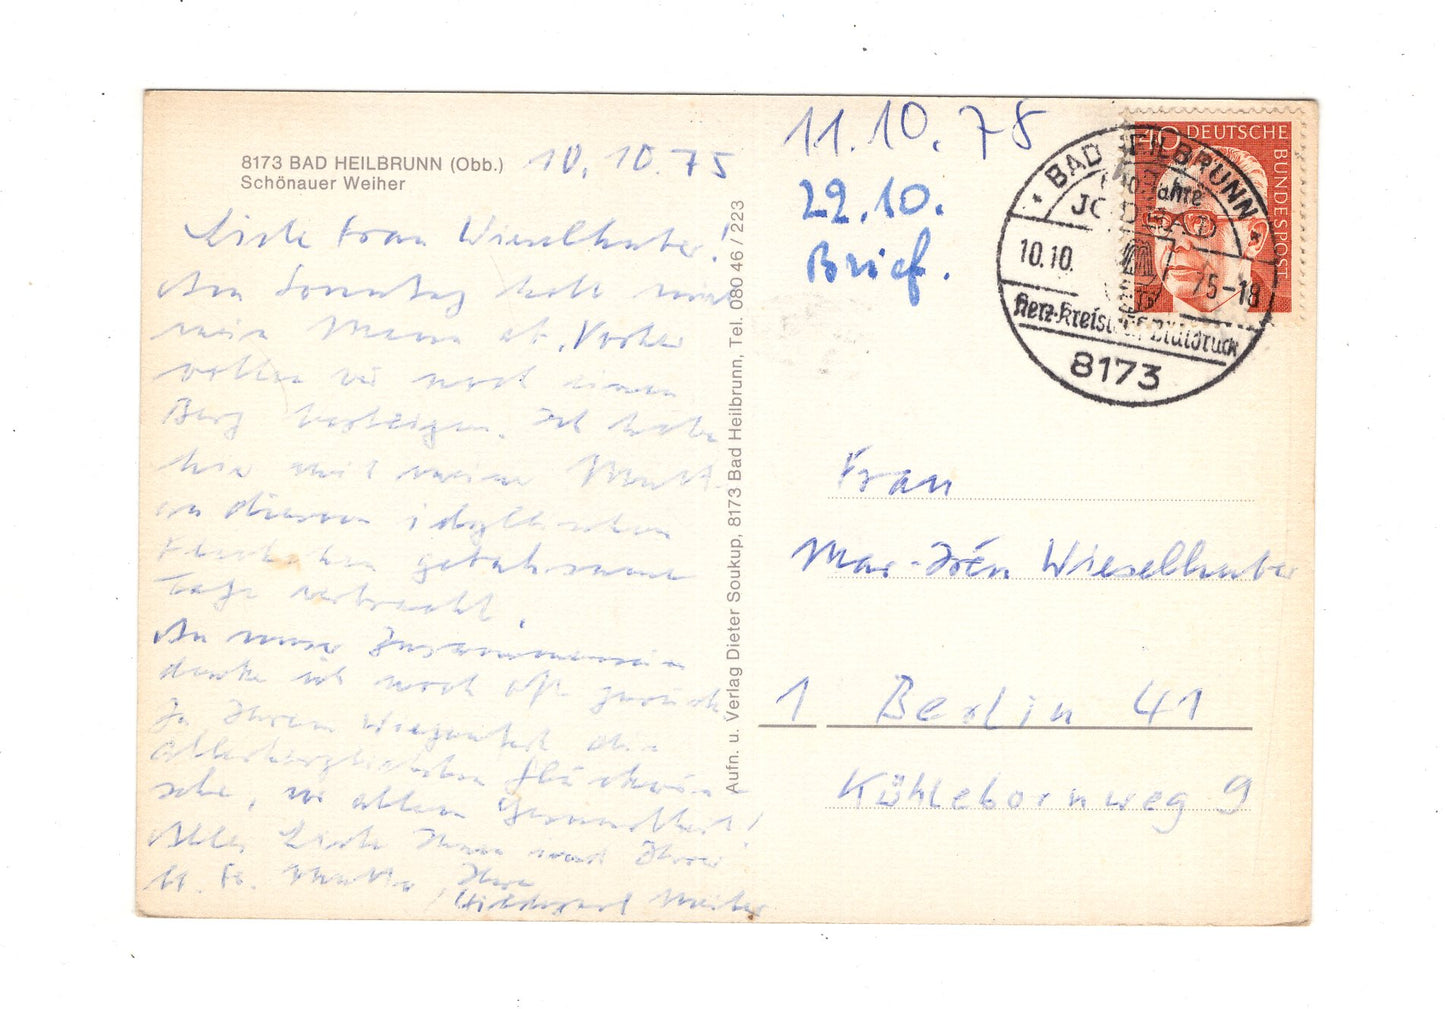 8173 BAD HEILBRUNN (Obb.)
Schönauer Weiher
10.10.75
Liebe Frau Wieselhuber!
Am Sonntag holt mich
mein Mann ab. Vorher
wollen wir noch einen
Berg besteigen. Ich habe
hier mit meiner
in diesem idyllischen
geruhsame
Tage verbracht.
An unser Zusammensein
denke ich noch oft zurück
Zu Ihrem Wiegenfest die
allerherzlichsten Glückwün-
sche, vor allem Gesundheit!
Alles Liebe Ihnen und Ihrer
Ihre
Aufn. u. Verlag Dieter Soukup, 8173 Bad Heilbrunn, Tel. 080 46 / 223
11.10.78
22.10.
Brief.
40 DEUTSCHE
BUNDESPOST
BAD HEILBRUNN
Jahre
JODBAD
10.10.75-18
Herz-Kreislauf-Blutdruck
8173
Frau
Wieselhuber
1 Berlin 41
Kühlebornweg 9